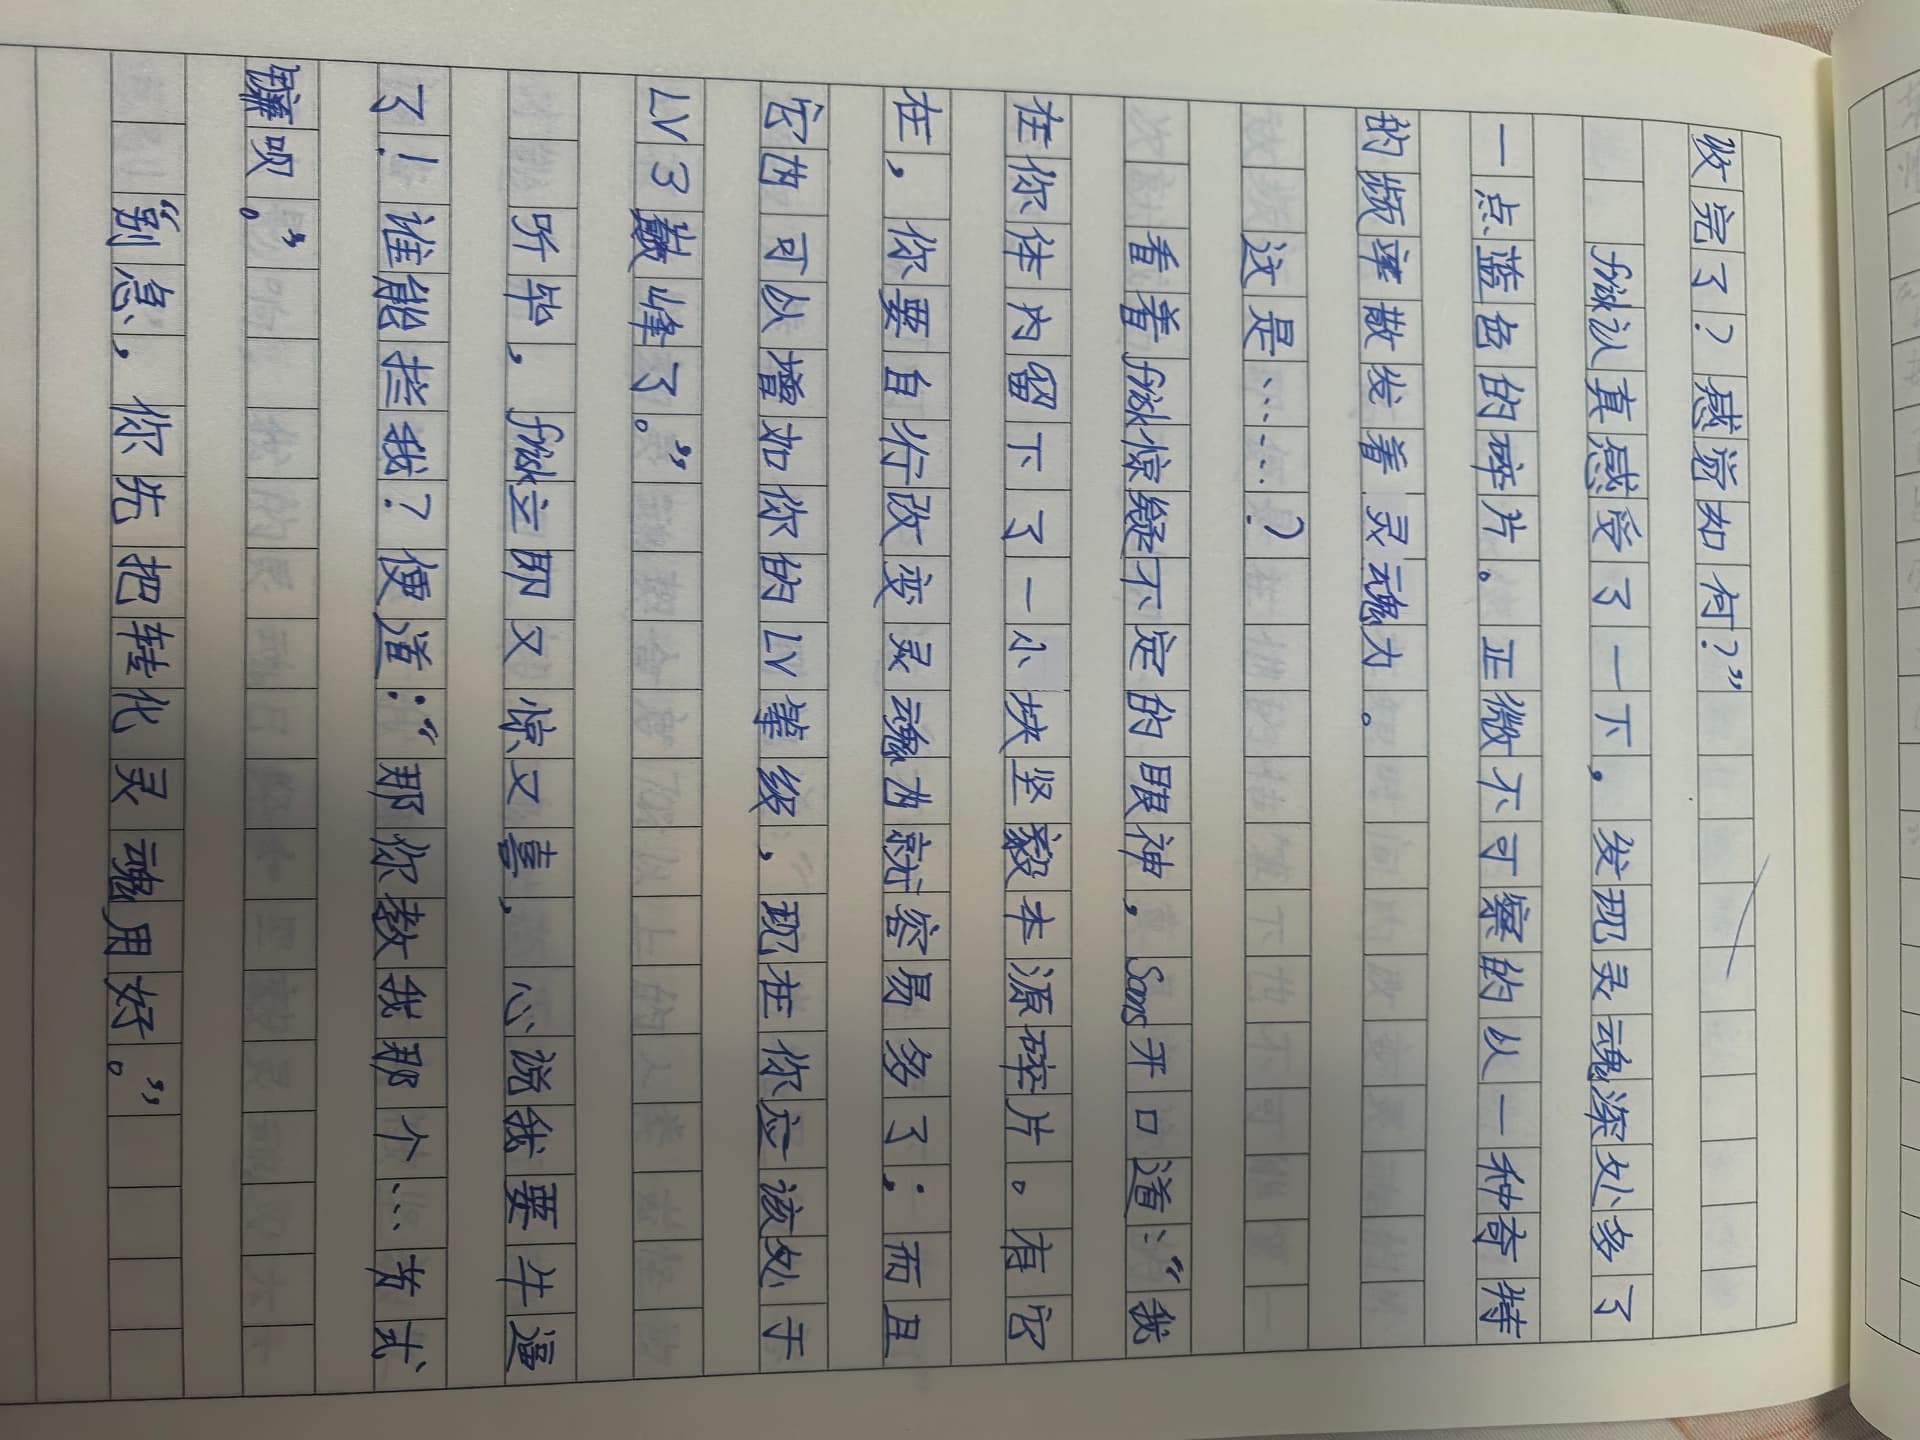 收完了？感觉如何？”
frisk认真感受了一下，发现灵魂深处多了
一点蓝色的碎片。正微不可察的以一种奇特
的频率散发着灵魂力。
这是……？
看着frisk惊疑不定的眼神，Sans开口道：“我
在你体内留下了一小块坚毅本源碎片。有它
在，你要自行改变灵魂力就容易多了；而且
它也可以增加你的LV等级，现在你应该处于
LV3巅峰了。”
听毕，frisk立即又惊又喜，心说我要牛逼
了！谁能拦我？便道：“那你教我那个…苦式
镰呗。”
“别急，你先把转化灵魂用好。”